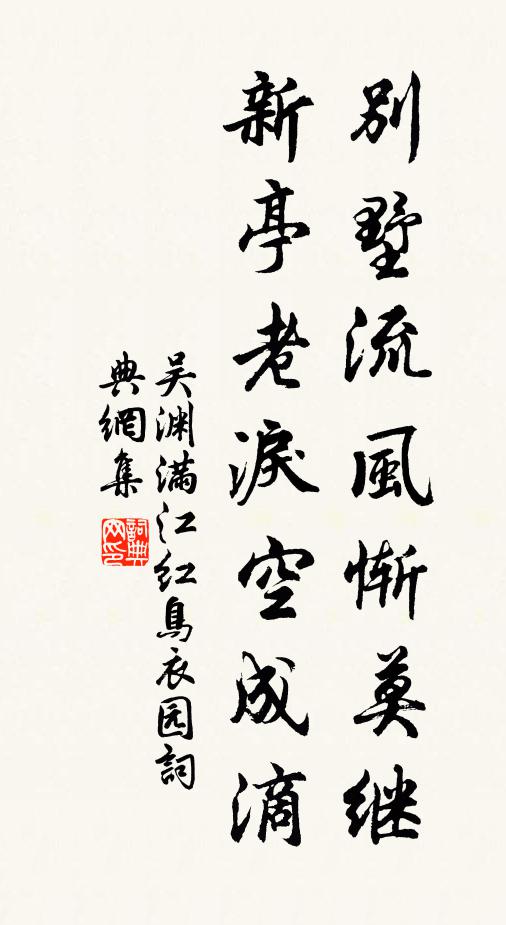 別墅流風慚莫继
新亭老淚空成滴
吴渊满江红鳥衣园詞
典網集
詞典网印